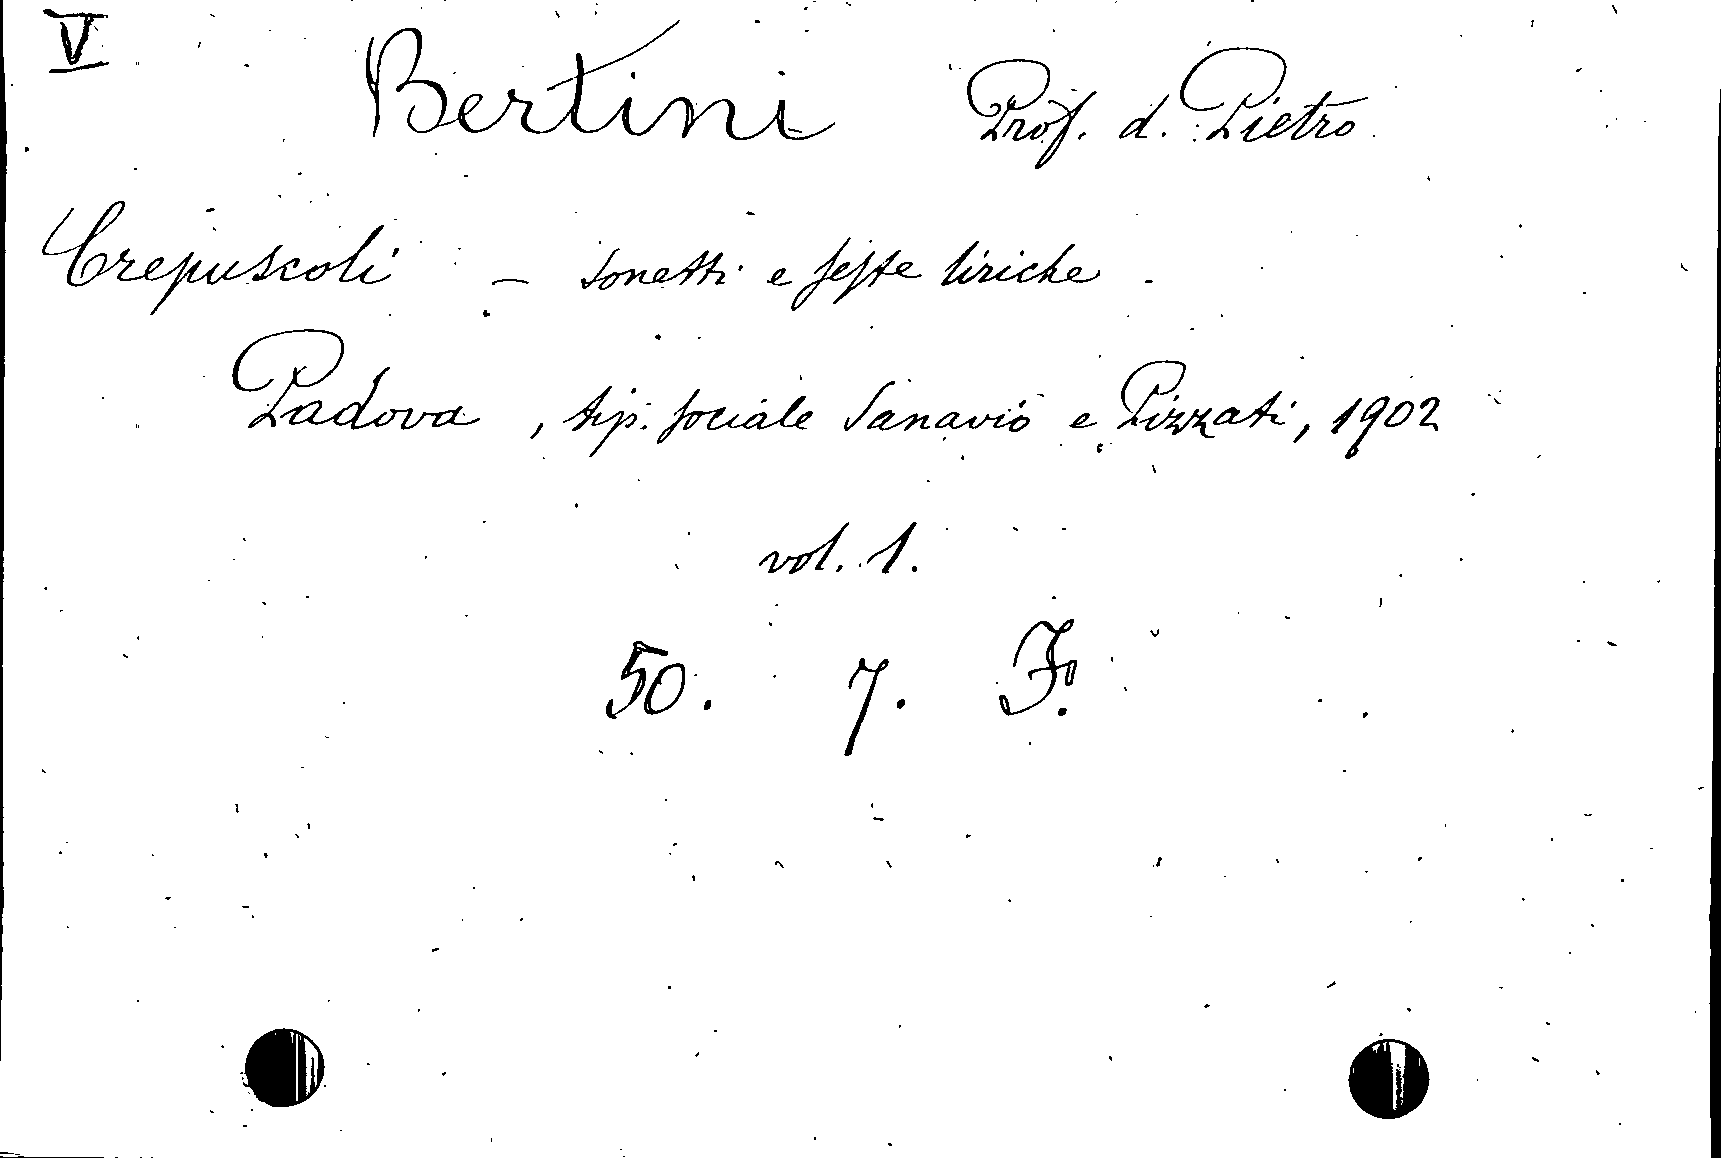 V
Bertini Prof. d. Pietro
Crepuscoli - Sonetti e seste liriche -
Padova, tip. sociale Sanavio e Pizzati, 1902
vol. 1.
50. 7. F.